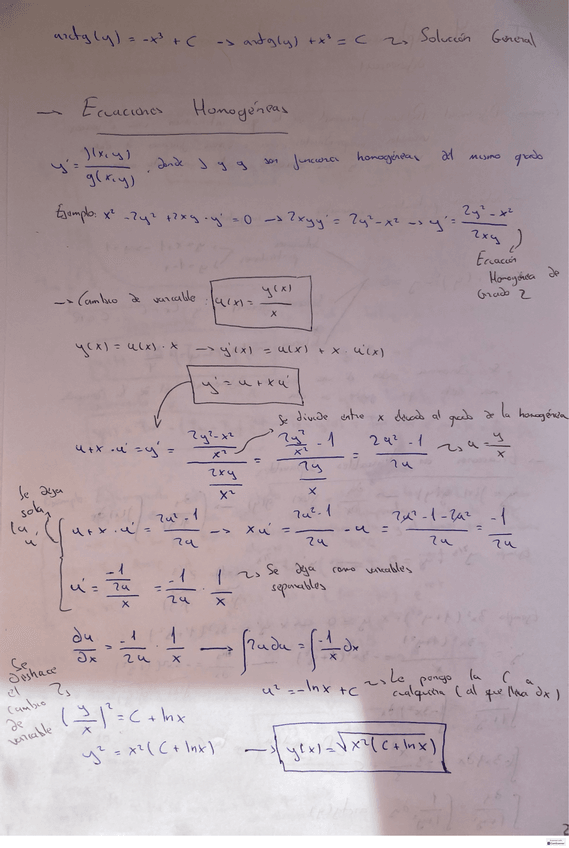 arctg(y) = -x³ + C → arctg(y) + x³ = C ⤳ Solución General
→ Ecuaciones Homogéneas
y' = f(x,y)/g(x,y), donde f y g son funciones homogéneas del mismo grado
Ejemplo: x² - 2y² + 2xy·y' = 0 → 2xyy' = 2y² - x² → y' = (2y² - x²)/(2xy)
Ecuación
Homogénea de
Grado 2
→ Cambio de variable: u(x) = y(x)/x
y(x) = u(x)·x → y'(x) = u(x) + x·u'(x)
y' = u + xu'
Se divide entre x elevado al grado de la homogénea
u + x·u' = y' = ((2y² - x²)/x²)/(2xy/x²) = (2y²/x² - 1)/(2y/x) = (2u² - 1)/(2u) ⤳ u = y/x
Se deja
sola
la
u'
u + x·u' = (2u² - 1)/(2u) → xu' = (2u² - 1)/(2u) - u = (2u² - 1 - 2u²)/(2u) = -1/(2u)
u' = (-1/(2u))/x = -1/(2u) · 1/x ⤳ Se deja como variables
separables
du/dx = -1/(2u) · 1/x → ∫2u du = ∫-1/x dx
u² = -ln x + C ⤳ Le pongo la C a
cualquiera (al que lleva dx)
Se
deshace
el
cambio
de
variable
(y/x)² = C + ln x
y² = x²(C + ln x) → y(x) = √(x²(C + ln x))
2